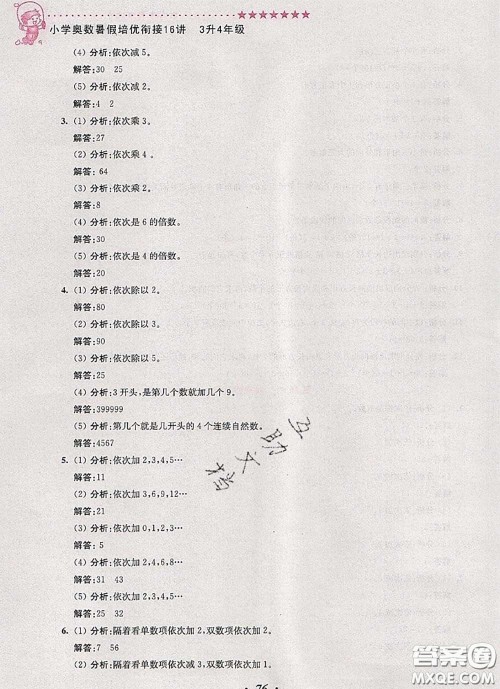 小学奥数暑假培优衔接16讲 3升4年级
(4) 分析:依次减5。
解答:30 25
(5) 分析:依次减2。
解答:4 2
3. (1) 分析:依次乘3。
解答:27
(2) 分析:依次乘4。
解答: 64
(3) 分析:依次乘2。
解答:8
(4) 分析:依次是6的倍数。
解答:30
(5) 分析:依次是4的倍数。
解答:20
4. (1) 分析:依次除以2。
解答:80
(2) 分析:依次除以3。
解答:90
(3) 分析:依次除以5。
解答:25
(4) 分析:3开头,是第几个数就加几个9。
解答:399999
(5) 分析:第几个就是几开头的4个连续自然数。
解答:4567
5. (1) 分析:依次加2,3,4,5…
解答:11
(2) 分析:依次加3,6,9,12…
解答:21
(3) 分析:依次加0,1,2,3…
解答: 5
(4) 分析:依次加2,4,6,8…
解答:31 43
(5) 分析:依次加2,3,4,5…
解答:25 32
6. (1) 分析:隔着看单数项依次加2,双数项依次加2。
解答:7 56
(2) 分析:隔着看单数项依次减3,双数项依次加1。
76
互助文档
答案圈
MXQE.COM